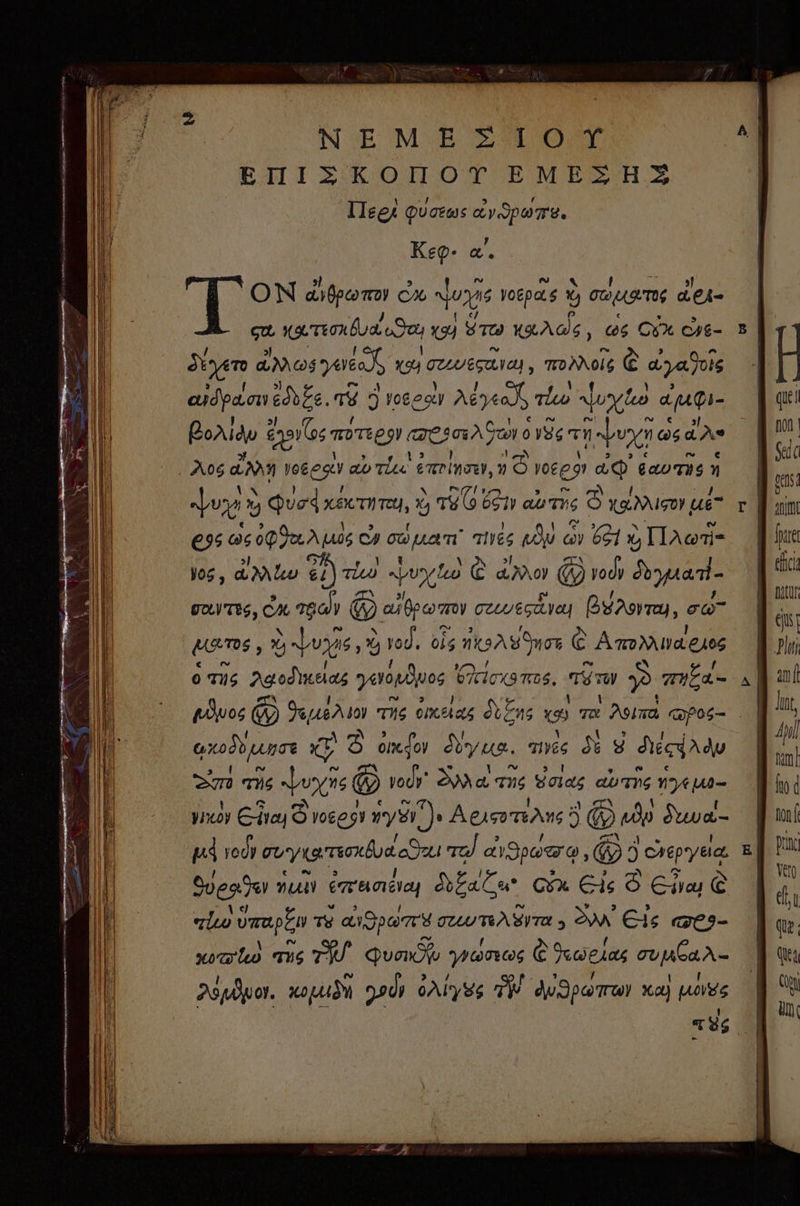 2
ΝΕΜΕΣΙΟΥ
ΕΠΙΣΚΟΠΟΥ ΕΜΕΣΗΣ
Περὶ φύσεως ἀνθρώπου.
Κεφ. α΄.
ΤΟΝ ἄνθρωπον ἐκ ψυχῆς νοερᾶς καὶ σώματος ἄρι-
στα κατεσκευάσθαι καὶ οὕτω καλῶς, ὡς οὐκ ἐνε-
δέχετο ἄλλως γενέσθαι, καὶ συνεστάναι, πολλοῖς καὶ ἀγαθοῖς
ἀνδράσιν ἔδοξε. τοῦ δὲ νοερὰν λέγεσθαι τὴν ψυχὴν ἀμφι-
βολίαν ἔχοντος πότερον προσελθὼν ὁ νοῦς τῇ ψυχῇ ὡς ἄλλ
λος ἄλλη νοερὰν αὐτὴν ἐποίησεν, ἢ τὸ νοερὸν ἀφ' ἑαυτῆς ἡ
ψυχὴ καὶ φύσει κέκτηται, καὶ τοῦτό ἐστιν αὐτῆς τὸ κάλλιστον μέ-
ρος ὡς ὀφθαλμὸς ἐν σώματι· τινὲς μὲν ὧν ἐστὶ καὶ Πλωτῖ-
νος, ἄλλην εἶναι τὴν ψυχὴν καὶ ἄλλον τὸν νοῦν δογματί-
σαντες, ἐκ τριῶν τὸν ἄνθρωπον συνεστάναι βούλονται, σώ-
ματος, καὶ ψυχῆς, καὶ νοῦ. οἷς ἠκολούθησε καὶ Ἀπολλινάριος
ὁ τῆς Λαοδικείας γενόμενος ἐπίσκοπος. τοῦτον γὰρ πηξά-
μενος τὸν θεμέλιον τῆς οἰκείας δόξης καὶ τὰ λοιπὰ προσ-
ῳκοδόμησε κατὰ τὸ οἰκεῖον δόγμα. τινὲς δὲ οὐ διέστειλαν
ἀπὸ τῆς ψυχῆς τὸν νοῦν· ἀλλὰ τῆς οὐσίας αὐτῆς ἡγεμο-
νικὸν εἶναι τὸ νοερὸν ἡγοῦνται. Ἀριστοτέλης δὲ τὸν μὲν δυνά-
μει νοῦν συγκατεσκευάσθαι τῷ ἀνθρώπῳ, τὸν δὲ ἐνεργείᾳ
θύραθεν ἡμῖν ἐπεισιέναι δοξάζει· οὐκ εἰς τὸ εἶναι καὶ
τὴν ὕπαρξιν τοῦ ἀνθρώπου συντελοῦντα, ἀλλ' εἰς προ-
κοπὴν τῆς τῶν φυσικῶν γνώσεως καὶ θεωρίας συμβαλ-
λόμενον. κομιδῇ γοῦν ὀλίγους τῶν ἀνθρώπων καὶ μόνους
τοὺς
A
B
Γ
Δ
E